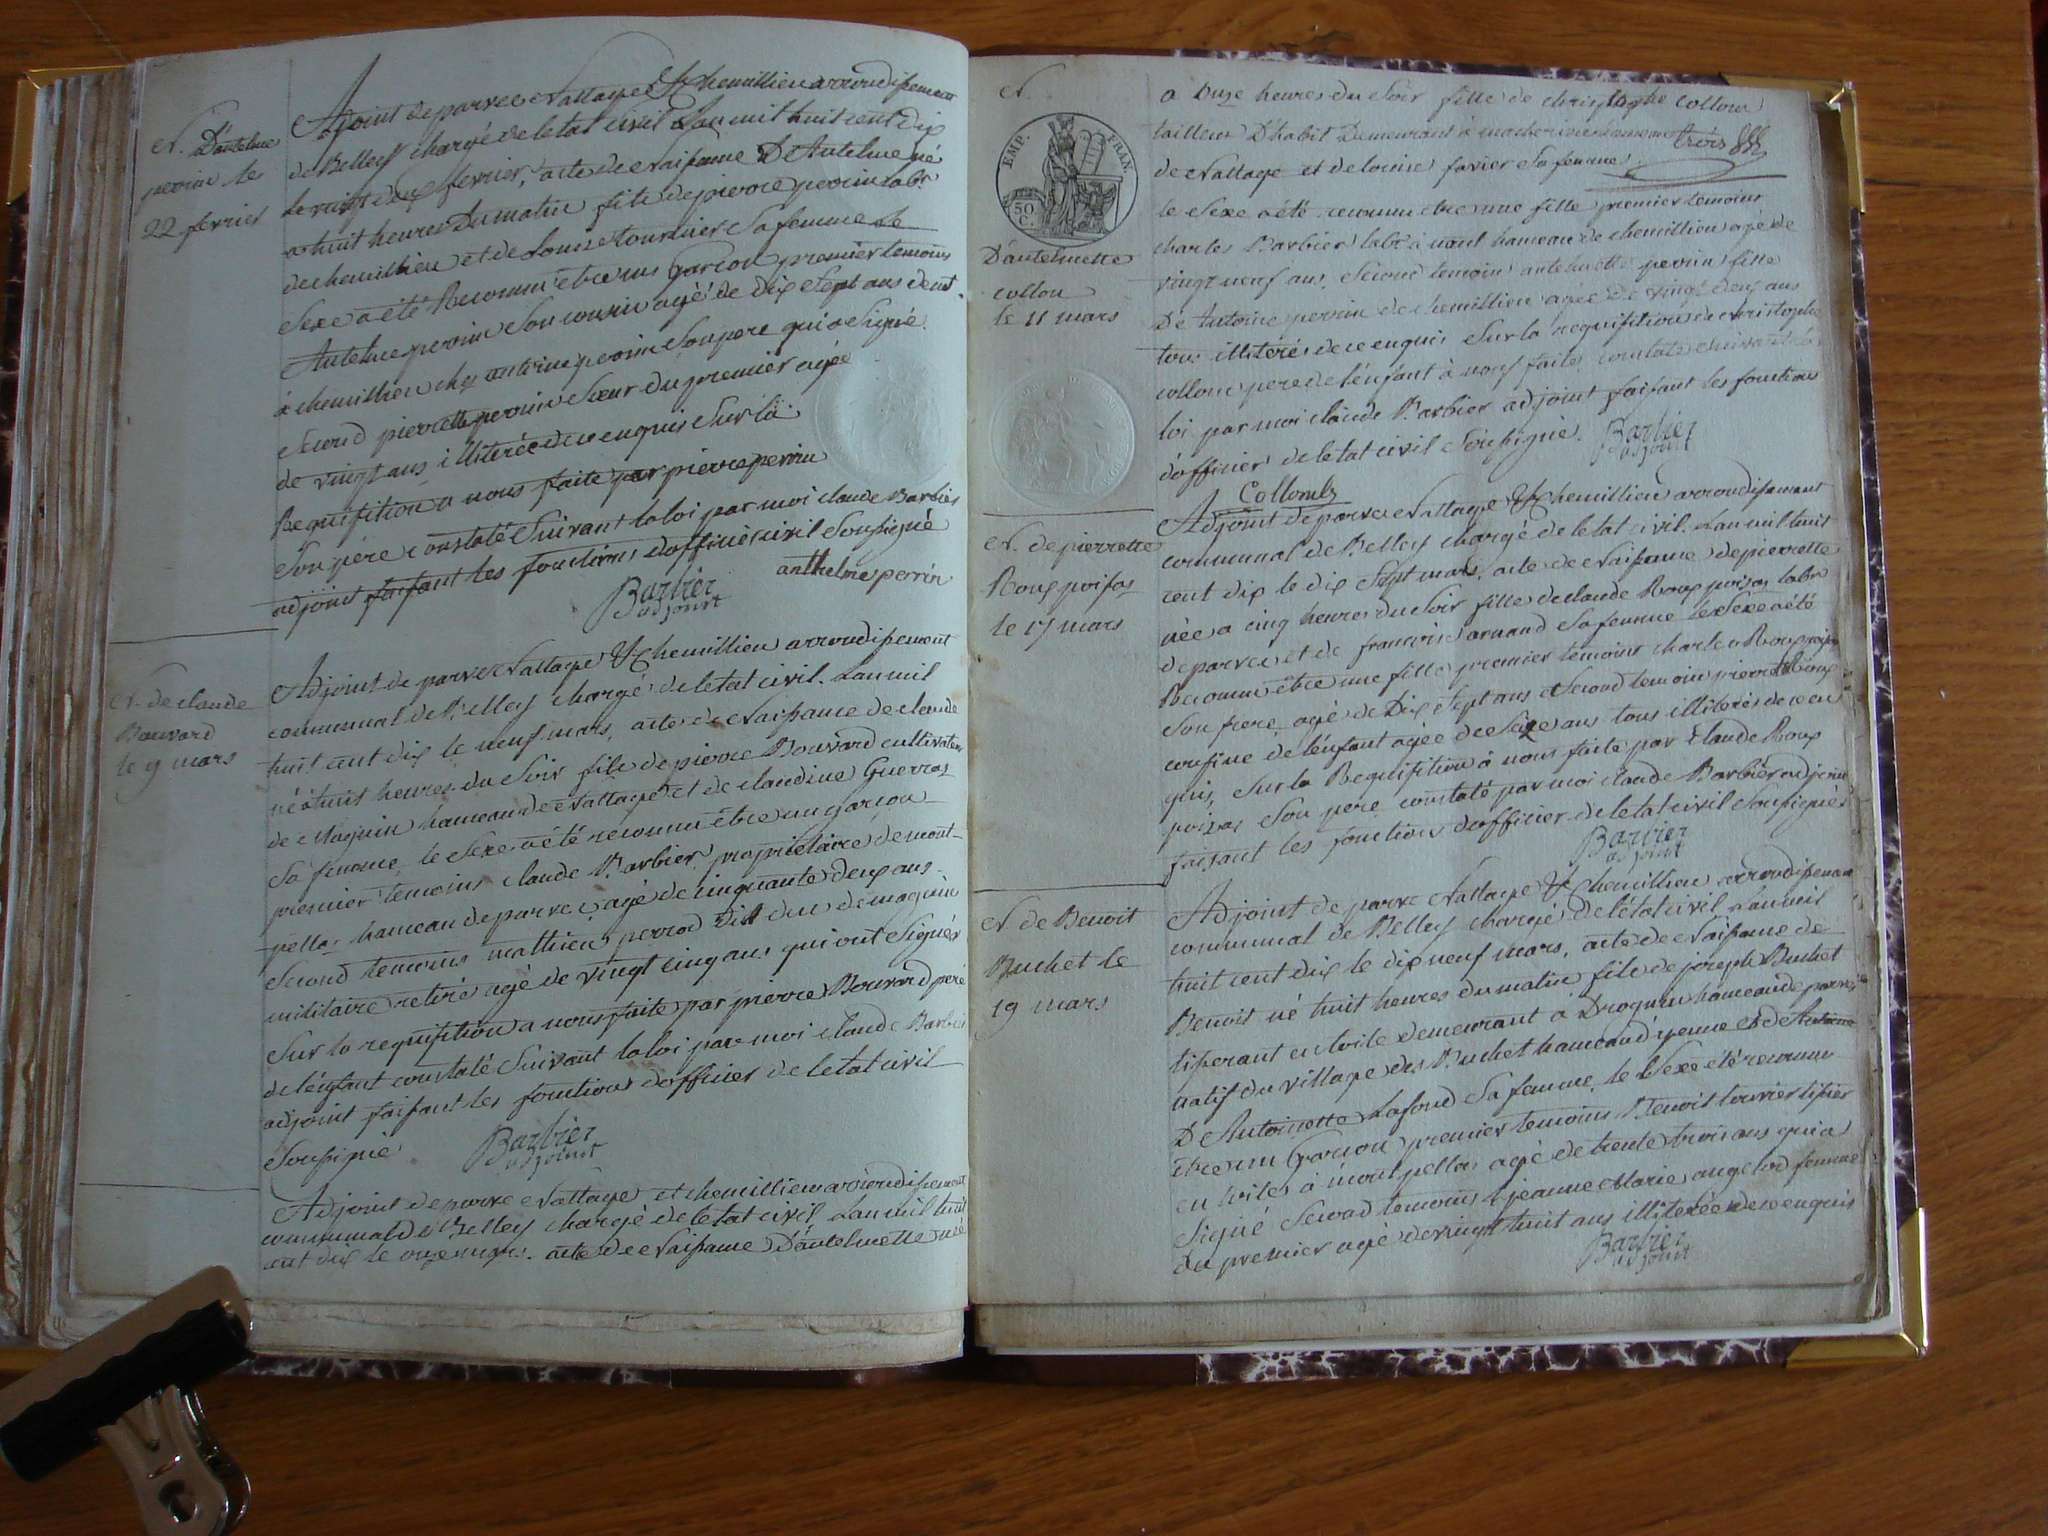 N. D'antelme
perrin le
22 fevrier
Adjoint de parves Nattage & Chemillieu arrondissement
de Belley chargé de letat civil L'an mil huit cent dix
le vingt deux fevrier, acte de Naissance D'Antelme né
a huit heures du matin fils de pierre perrin labr
de chemillieu et de Louise tournier Sa femme le
Sexe a été Reconnu être un Garcon premier temoins
Antelme perrin Son cousin agé de Dix Sept ans demt
à chemillieu chez antoine perrin Son pere qui a Signé
Second pierrette perrin Sœur du premier agée
de vingt ans illiterée de ce enquis Sur la
Requisition a nous faite par pierre perrin
Son père constaté Suivant la loi par moi claude Barbier
adjoint faisant les fonctions d'officier civil Soussigné
anthelme perrin
Barbier
adjoint
N. de claude
Bouvard
le 9 mars
Adjoint de parves Nattage & Chemillieu arrondissement
communal de Belley chargé de letat civil. L'an mil
huit cent dix le neuf mars, acte de Naissance de claude
né à huit heures du Soir fils de pierre Bouvard cultivateur
de Noquin hameau de Nattage et de claudine Guerraz
Sa femme le Sexe a été reconnu être un garçon
premier temoins claude Barbier proprietaire de mont-
pellas hameau de parves agé de cinquante deux ans
Second temoins mathieu perrod dit duc de moquin
militaire retiré agé de vingt cinq ans qui ont Signés
Sur la requisition a nous faite par pierre Bouvard père
de l'enfant constaté Suivant la loi par moi claude Barbier
adjoint faisant les fonctions d'officier de letat civil
Soussigné
Barbier
adjoint
Adjoint de parves Nattage et chemillieu arrondissement
communal de Belley chargé de letat civil L'an mil huit
cent dix le onze mars. acte de Naissance D'antelmette née
N.
EMP. FRAN.
50 C.
D'antelmette
collou
le 11 mars
a Onze heures du Soir fille de christophe collou
tailleur D'habit Demeurant à hameau trois
de Nattage et de louise favier Sa femme
le Sexe a été reconnu etre une fille premier temoins
charles Barbier labr à nant hameau de chemillieu agé de
vingt neuf ans, Second temoin antelmette perrin fille
De Antoine perrin de chemillieu agée De vingt deux ans
tous illitérés de ce enquis Sur la requisition de christophe
collou pere de l'enfant à nous faite, constaté Suivant la
loi par moi claude Barbier adjoint faisant les fonctions
d'officier de letat civil Soussigné.
Barbier
adjoint
Collomb
N. de pierrette
Roux poisas
le 17 mars
Adjoint de parves Nattage & Chemillieu arrondissement
communal de Belley chargé de letat civil L'an mil huit
cent dix le dix Sept mars, acte de Naissance de pierrette
née a cinq heures du Soir fille de claude Roux poizas labr
de parves et de francoise arnaud Sa femme le Sexe a été
Reconnu être une fille premier temoins charles Roux poizas
Son frere agé de Dix Sept ans et Second temoin pierrette Roux
cousine de l'enfant agée de Seize ans tous illiterés de ce en
quis, Sur la Requisition à nous faite par claude Roux
poizas Son pere constaté par moi claude Barbier adjoint
faisant les fonctions d'officier de letat civil Soussignés
Barbier
adjoint
N. de Benoit
Buchet le
19 mars
Adjoint de parves Nattage & Chemillieu arrondissement
communal de Belley chargé de l'état civil L'an mil
huit cent dix le dix neuf mars, acte de Naissance de
Benoit né huit heures du matin fils de joseph Buchet
tiserant en toile demeurant à Droquin hameau de parves
natif du village des Buchet hameau d'yenne et de Antoine
D'Antoinette Lafond Sa femme, le Sexe été reconnu
être un Garcon, premier temoins Benoit tournier tissier
en toiles à montpellas agé de trente trois ans qui a
Signé Second temoins jeanne Marie angelod femme
du premier agé de vingt huit ans illiterée de ce enquis
Barbier
adjoint